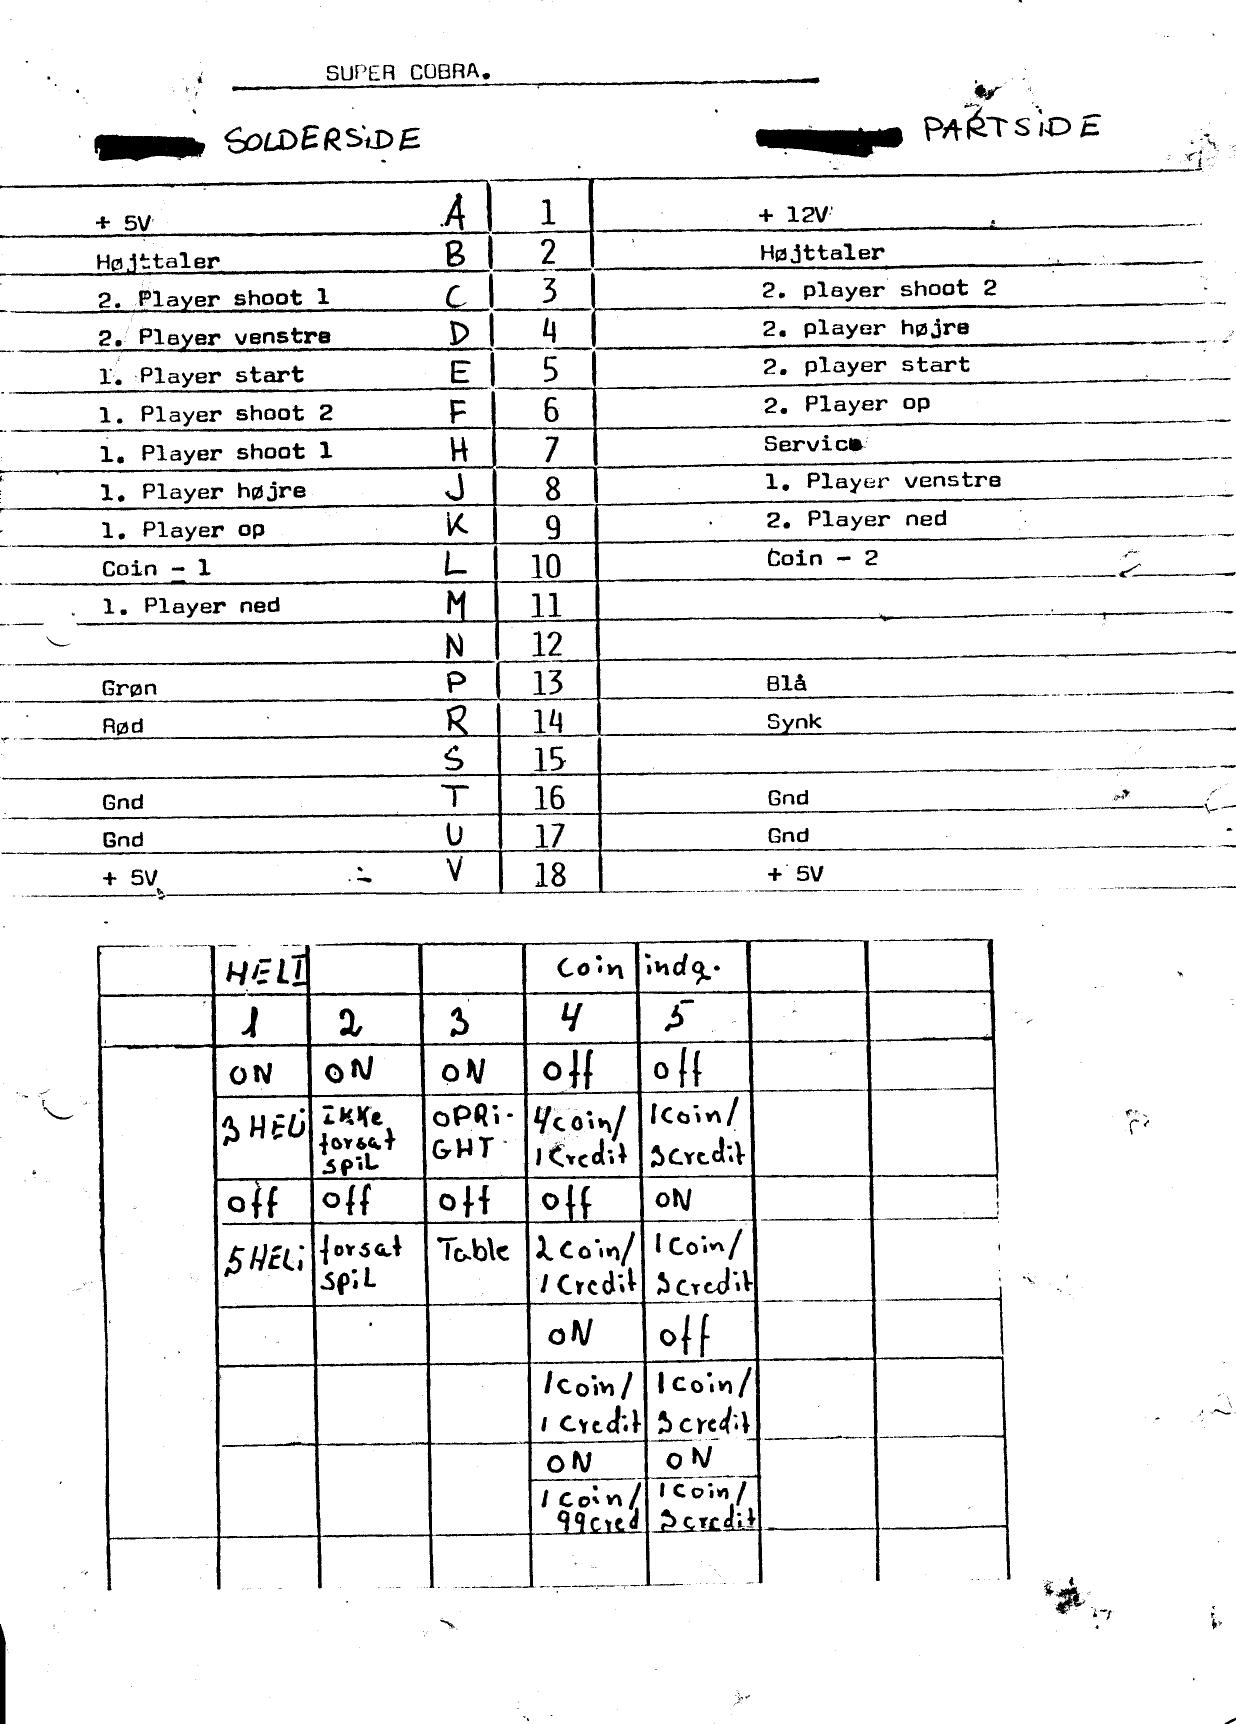 SUPER COBRA.
SOLDERSiDE PARTSiDE
+ 5V A 1 + 12V
Højttaler B 2 Højttaler
2. Player shoot 1 C 3 2. player shoot 2
2. Player venstre D 4 2. player højre
1. Player start E 5 2. player start
1. Player shoot 2 F 6 2. Player op
1. Player shoot 1 H 7 Service
1. Player højre J 8 1. Player venstre
1. Player op K 9 2. Player ned
Coin - 1 L 10 Coin - 2
1. Player ned M 11
N 12
Grøn P 13 Blå
Rød R 14 Synk
S 15
Gnd T 16 Gnd
Gnd U 17 Gnd
+ 5V V 18 + 5V
HELI Coin indg.
1 2 3 4 5
ON ON ON Off Off
3 HELi ikke OPRi- 4 coin/ 1 Coin/
forsat GHT 1 Credit 3 credit
spiL
Off Off Off Off ON
5 HELi forsat Table 2 Coin/ 1 Coin/
spiL 1 Credit 3 credit
ON Off
1 coin/ 1 Coin/
1 Credit 3 credit
ON ON
1 coin/ 1 Coin/
99 cred 3 credit